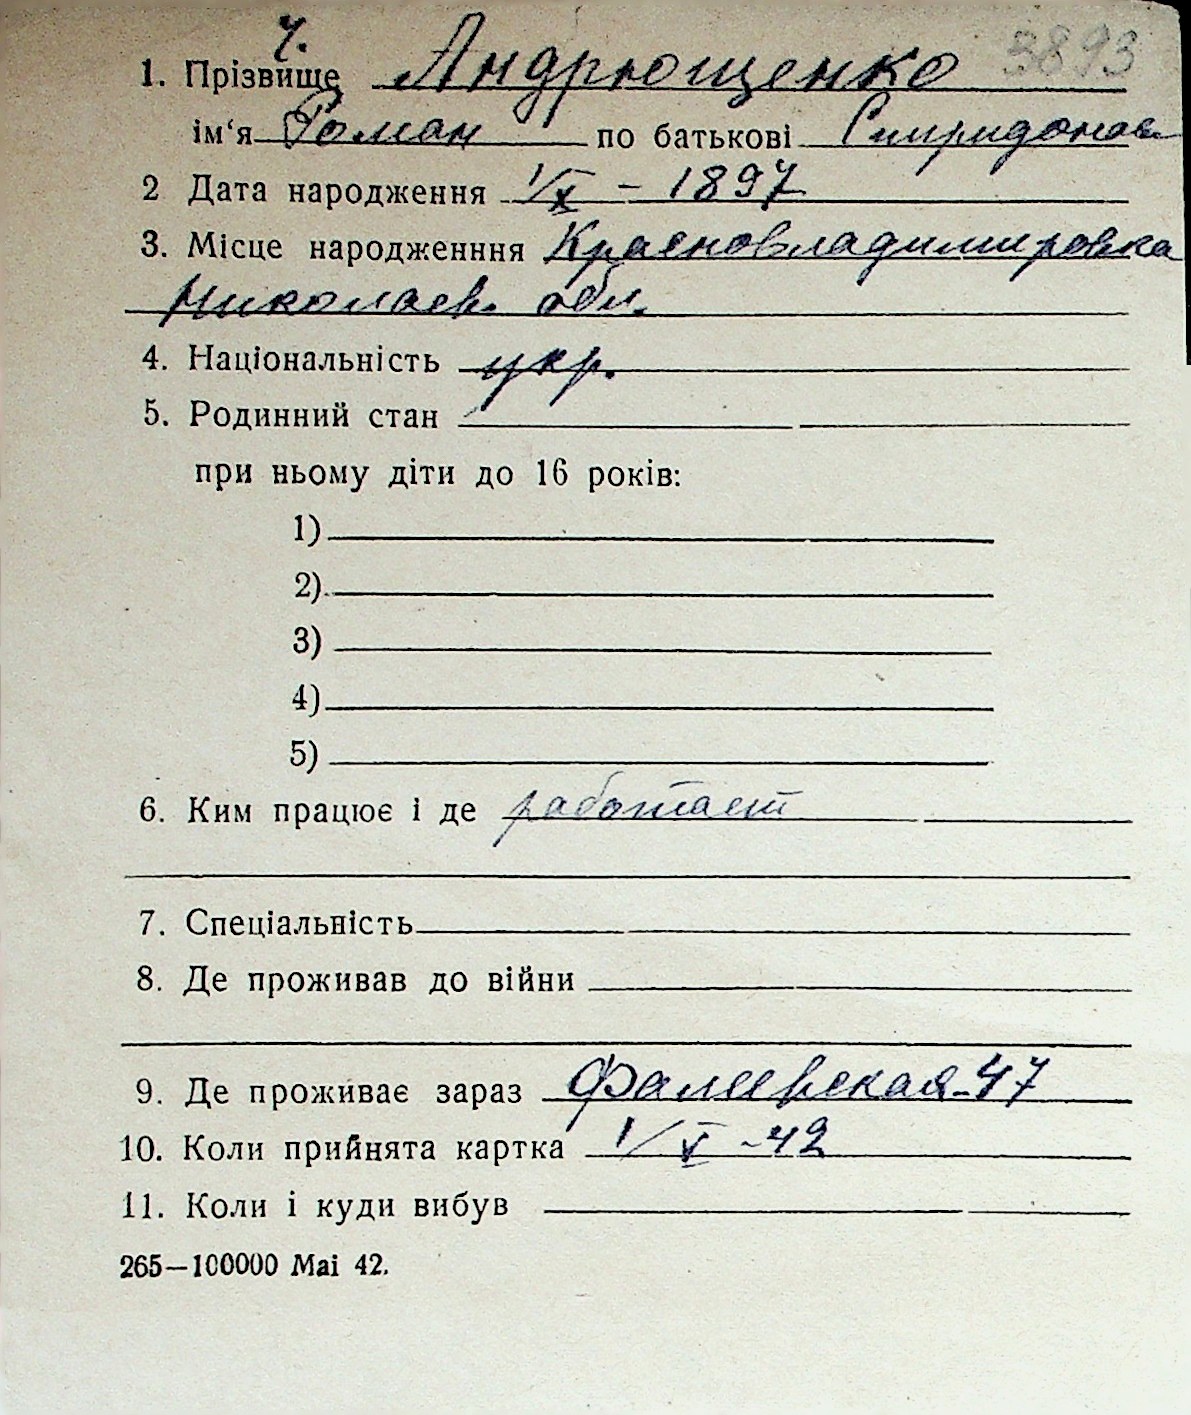 ч.
1. Прізвище Андрющенко 3893
ім‘я Роман по батькові Спиридонов
2 Дата народження 1/X – 1897
3. Місце народженння Красновладимировка
Николаев. обл.
4. Національність укр.
5. Родинний стан
при ньому діти до 16 років:
1)
2)
3)
4)
5)
6. Ким працює і де работает
7. Спеціальність
8. Де проживав до війни
9. Де проживає зараз Фалеевская-47
10. Коли прийнята картка 1/V -42
11. Коли і куди вибув
265—100000 Mai 42.